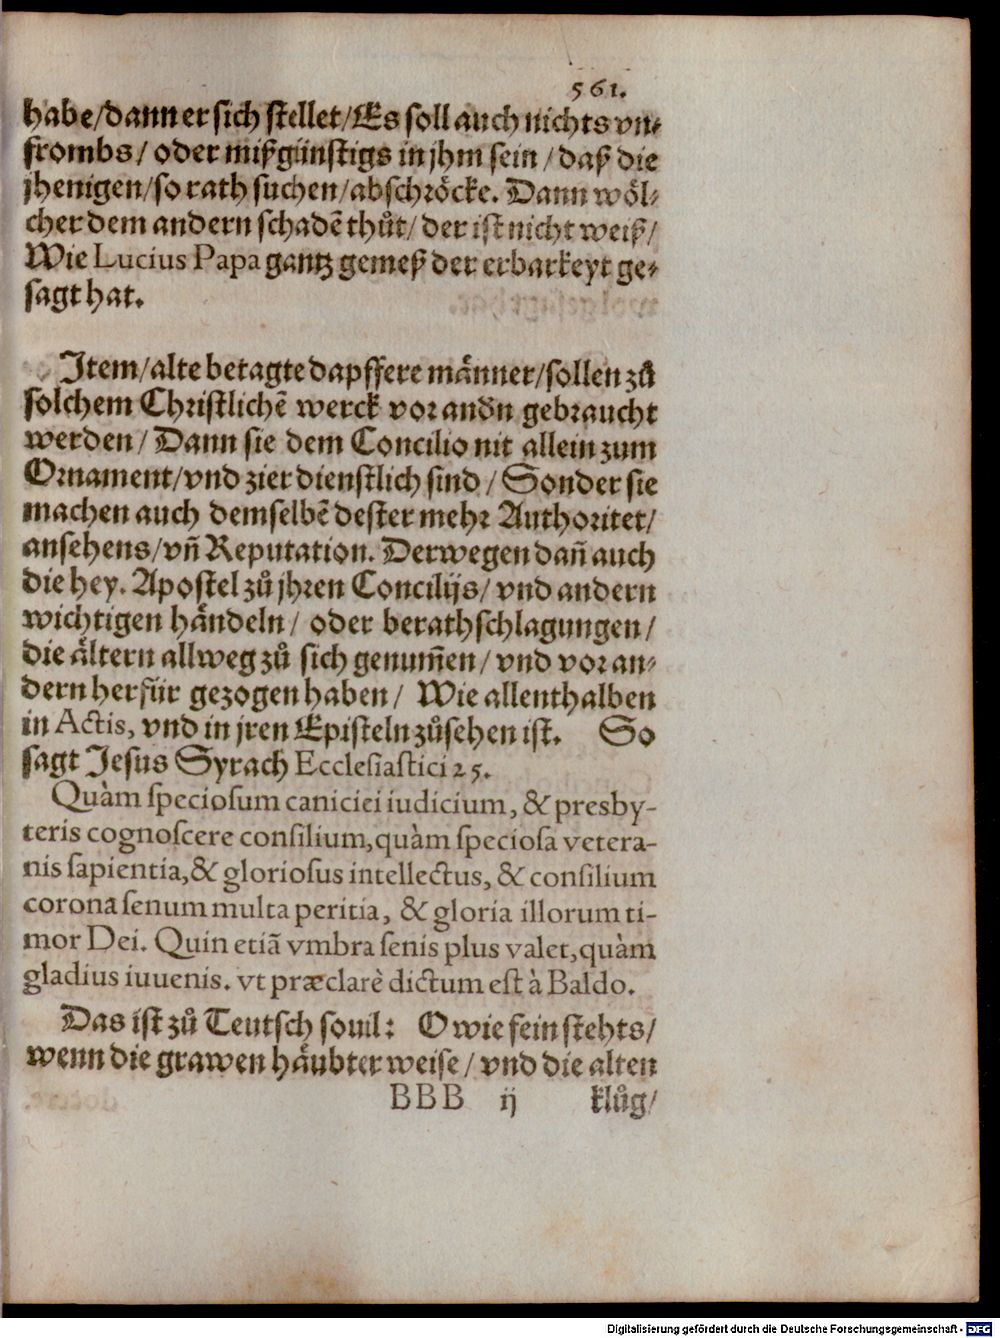 561.
habe/dann er sich stellet/Es soll auch nichts vn⸗
frombs/ oder mißgünstigs in jhm sein/ daß die
jhenigen/so rath suchen/abschröcke. Dann wöl⸗
cher dem andern schadẽ thůt/ der ist nicht weiß/
Wie Lucius Papa gantz gemeß der erbarkeyt ge⸗
sagt hat.
Item/alte betagte dapffere männer/sollen zů
solchem Christlichẽ werck vor andn̄ gebraucht
werden/ Dann sie dem Concilio nit allein zum
Ornament/vnd zier dienstlich sind/ Sonder sie
machen auch demselbẽ dester mehr Authoritet/
ansehens/vn̄ Reputation. Derwegen dan̄ auch
die hey. Apostel zů jhren Concilijs/ vnd andern
wichtigen händeln/ oder berathschlagungen/
die ältern allweg zů sich genum̄en/ vnd vor an⸗
dern herfür gezogen haben/ Wie allenthalben
in Actis, vnd in jren Episteln zůsehen ist. So
sagt Jesus Syrach Ecclesiastici 25.
Quàm speciosum caniciei iudicium, & presby-
teris cognoscere consilium, quàm speciosa vetera-
nis sapientia, & gloriosus intellectus, & consilium
corona senum multa peritia, & gloria illorum ti-
mor Dei. Quin etiã vmbra senis plus valet, quàm
gladius iuuenis. vt præclarè dictum est à Baldo.
Das ist zů Teutsch souil: O wie fein stehts/
wenn die grawen häubter weise/ vnd die alten
BBB ij klůg/
Digitalisierung gefördert durch die Deutsche Forschungsgemeinschaft - DFG